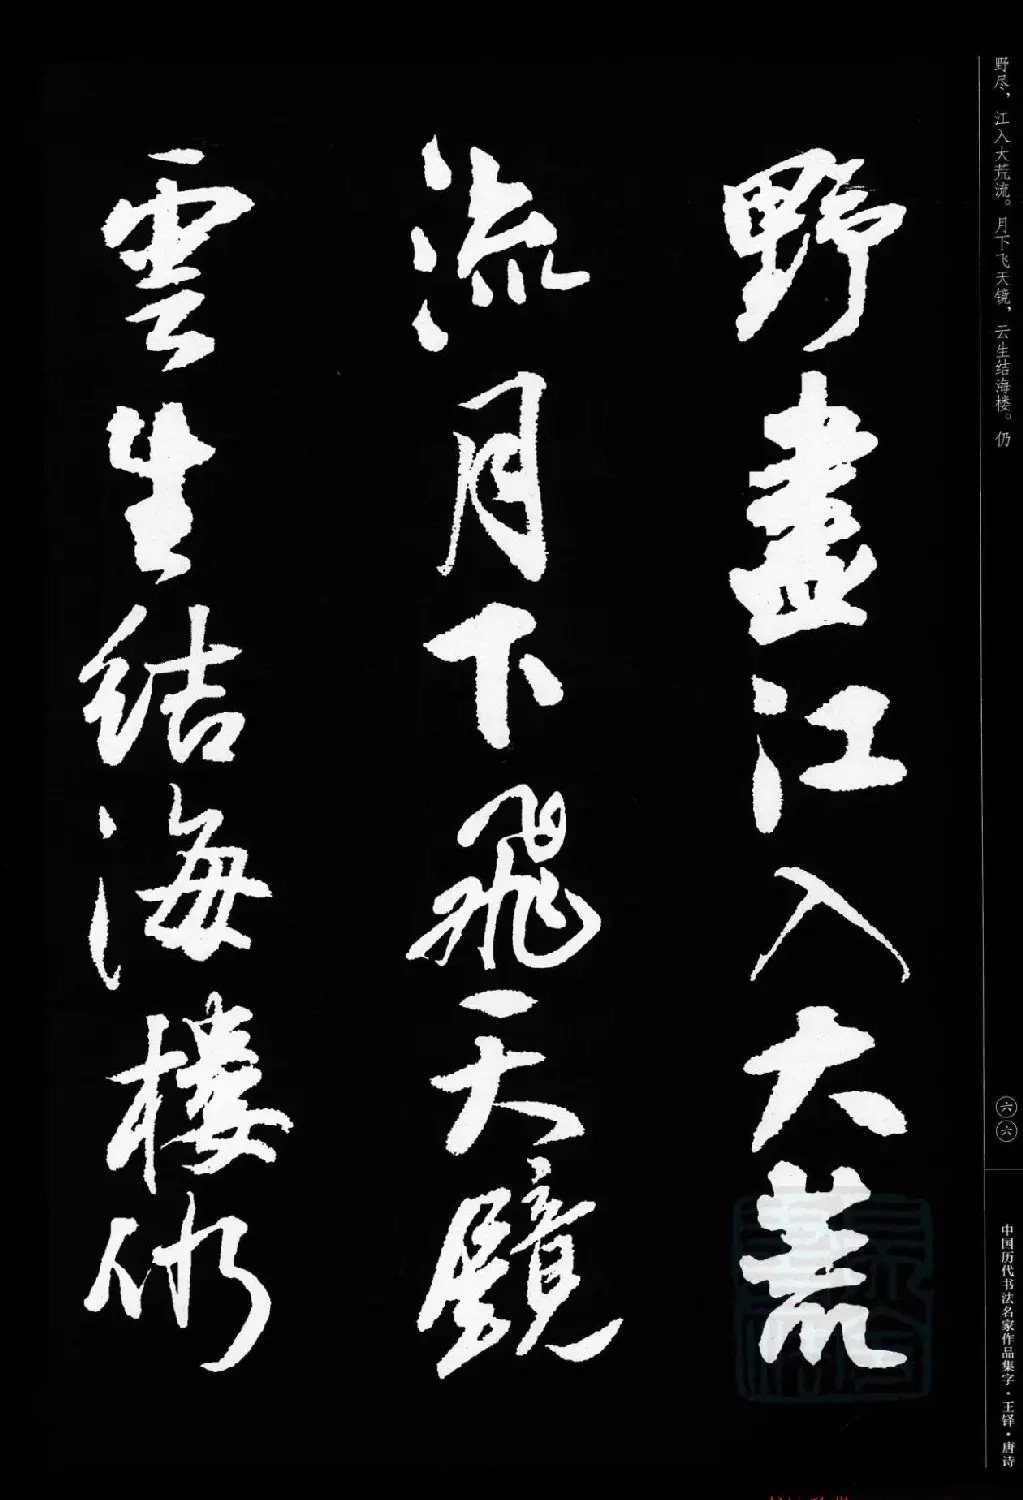 野尽，江入大荒流。月下飞天镜，云生结海楼。仍
野盡江入大荒
流月下飛天鏡
雲生结海樓仍
六六
中国历代书法名家作品集字·王铎·唐诗